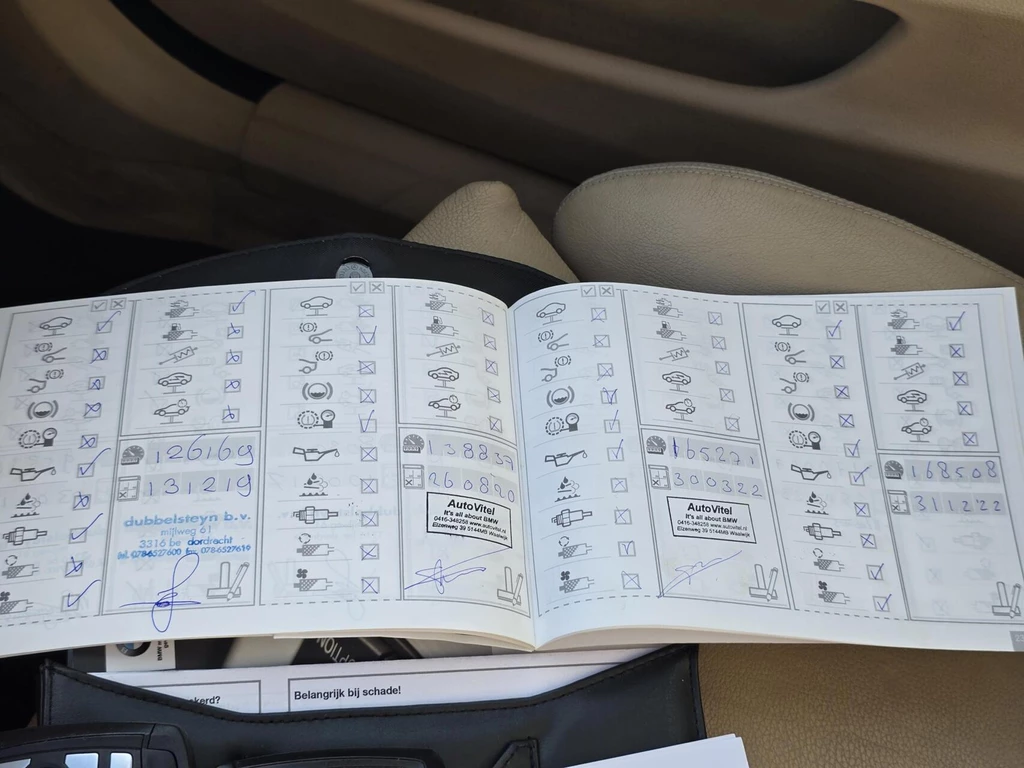 126169
131219
dubbelsteyn b.v.
mijlweg 61
3316 be dordrecht
tel. 078-6527600 fax 078-6527619
138837
260820
AutoVitel
It's all about BMW
0416-348258 www.autovitel.nl
Elzenweg 39 5144MB Waalwijk
165271
300322
AutoVitel
It's all about BMW
0416-348258 www.autovitel.nl
Elzenweg 39 5144MB Waalwijk
168508
311222
BMW
Belangrijk bij schade!